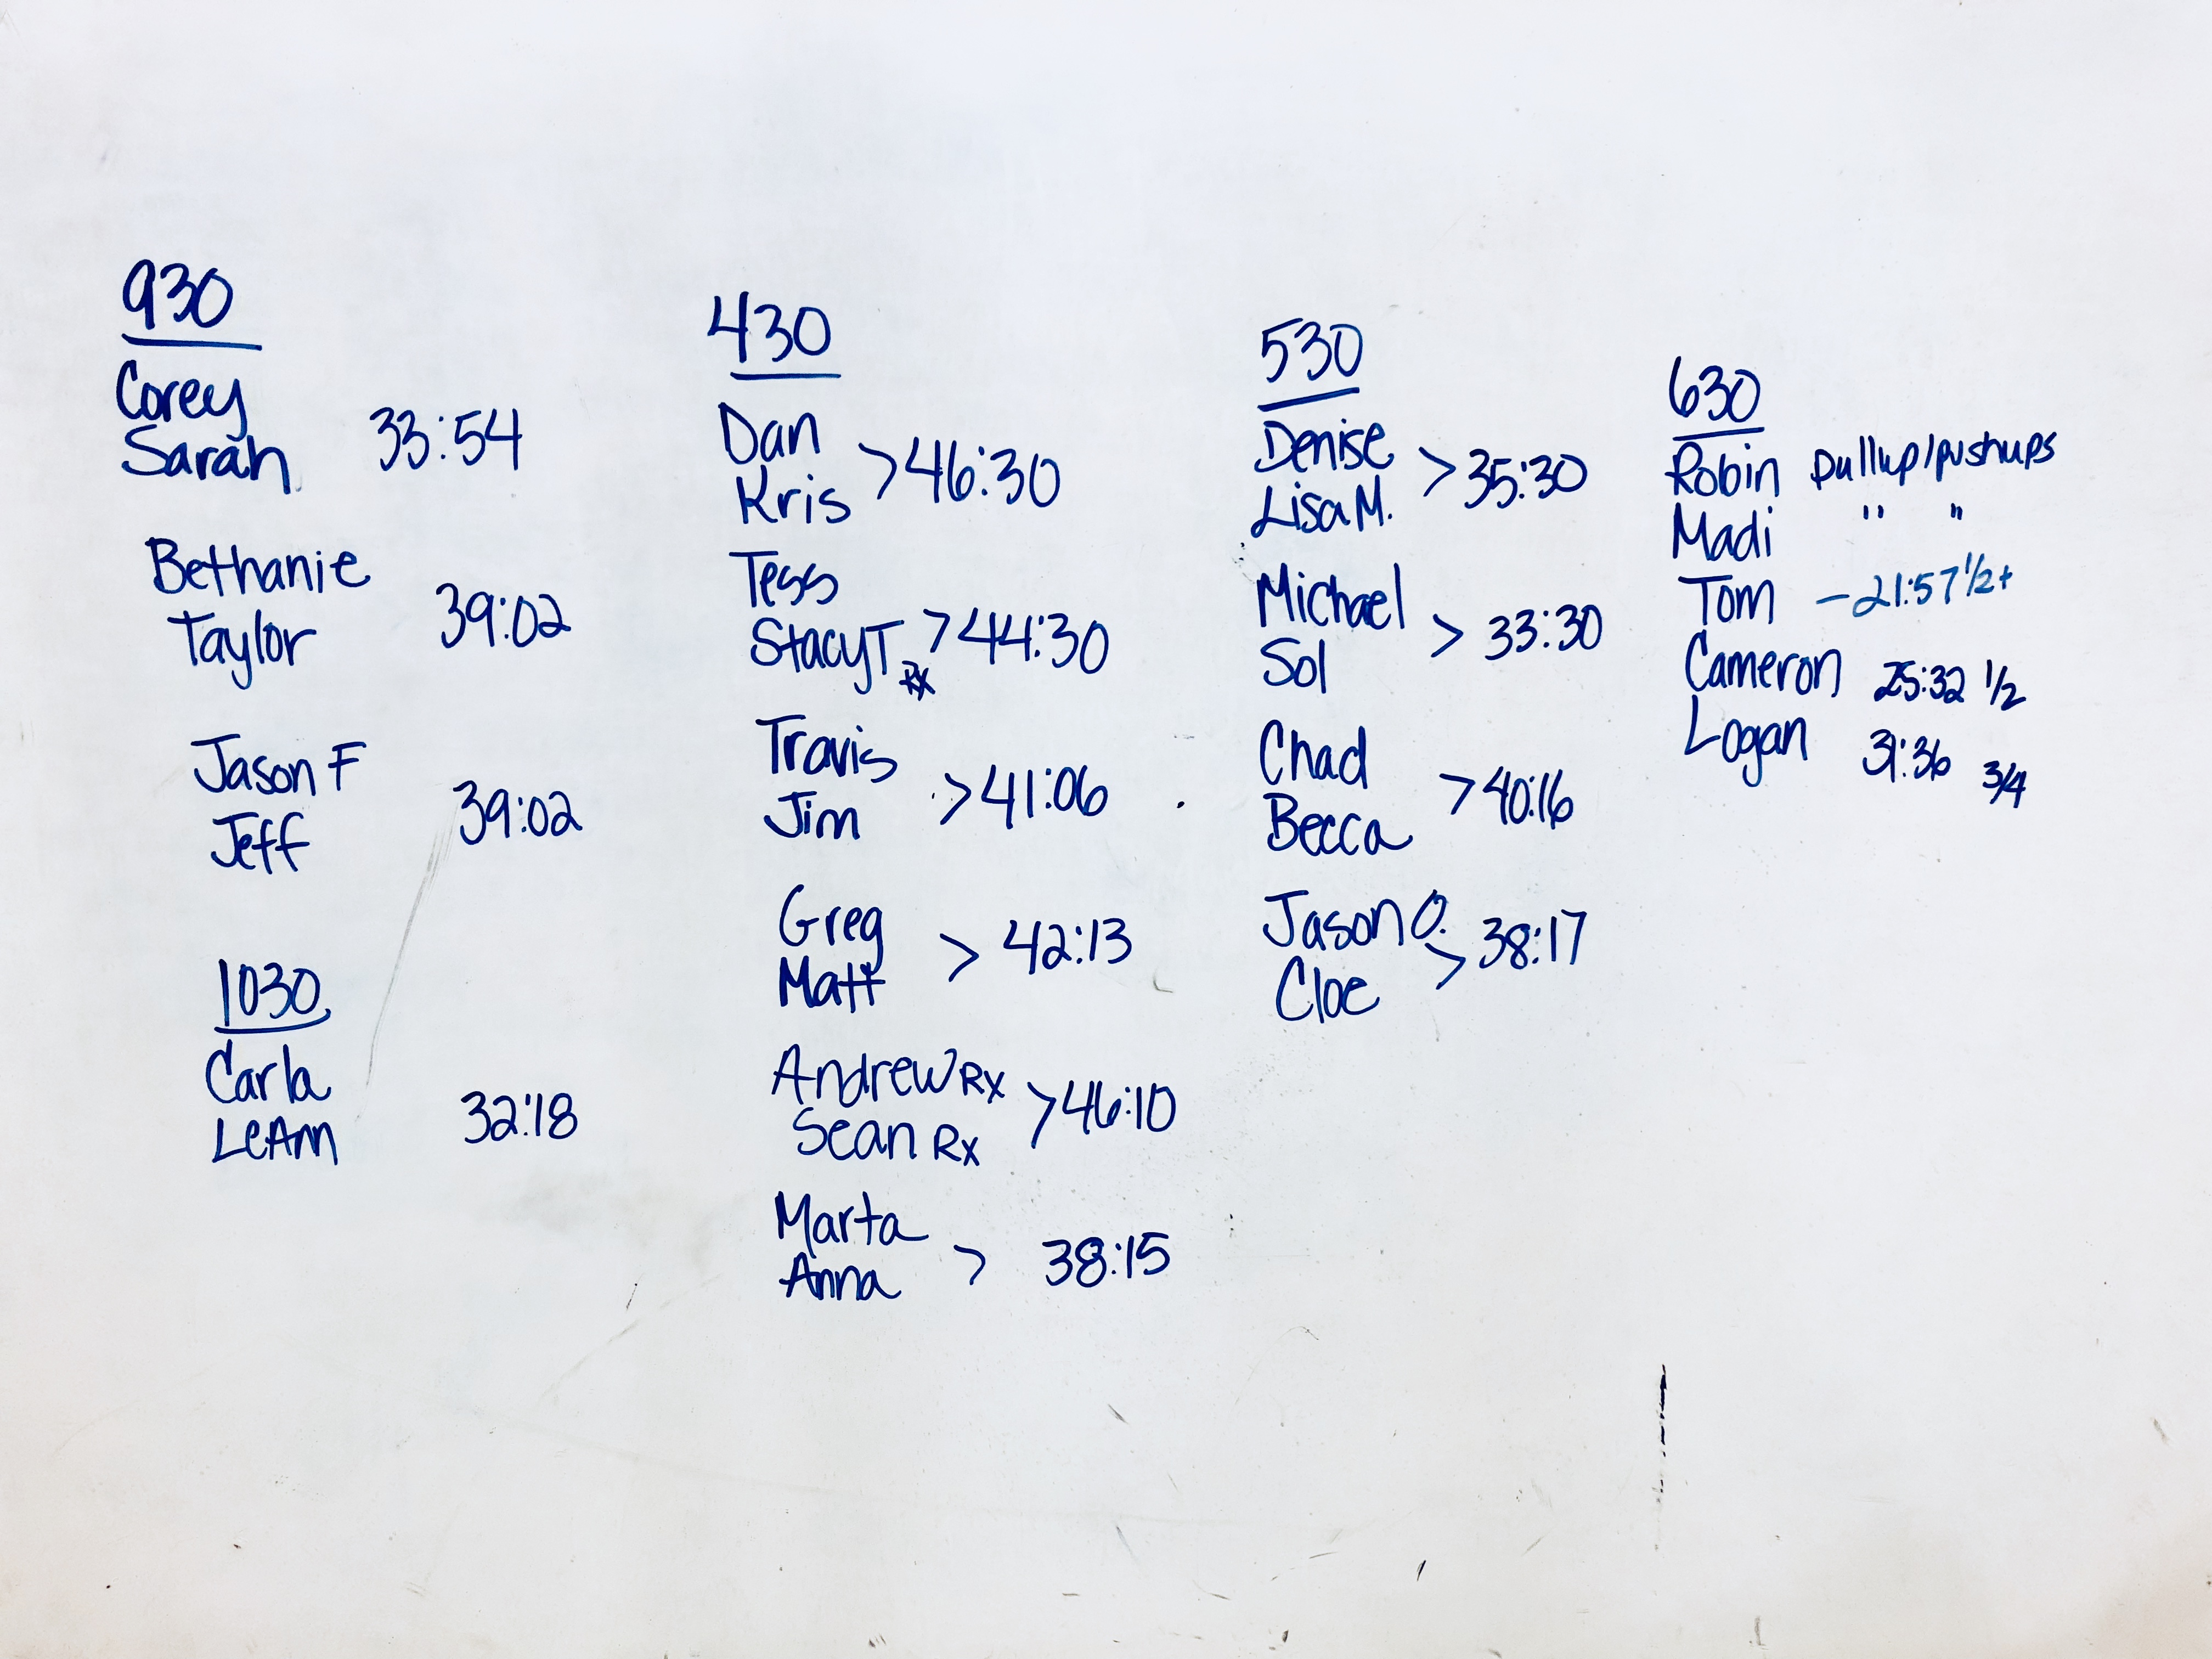 930
Corey
Sarah 33:54
Bethanie
Taylor 39:02
Jason F
Jeff 39:02
1030
Carla
LeAnn 32:18
430
Dan
Kris >46:30
Tess
Stacy T Rx >44:30
Travis
Jim >41:06
Greg
Matt > 42:13
Andrew Rx
Sean Rx >46:10
Marta
Anna > 38:15
530
Denise
Lisa M. >35:30
Michael
Sol > 33:30
Chad
Becca >40:16
Jason O.
Cloe >38:17
630
Robin pullup/pushups
Madi " "
Tom -21:57 1/2+
Cameron 25:32 1/2
Logan 31:36 3/4